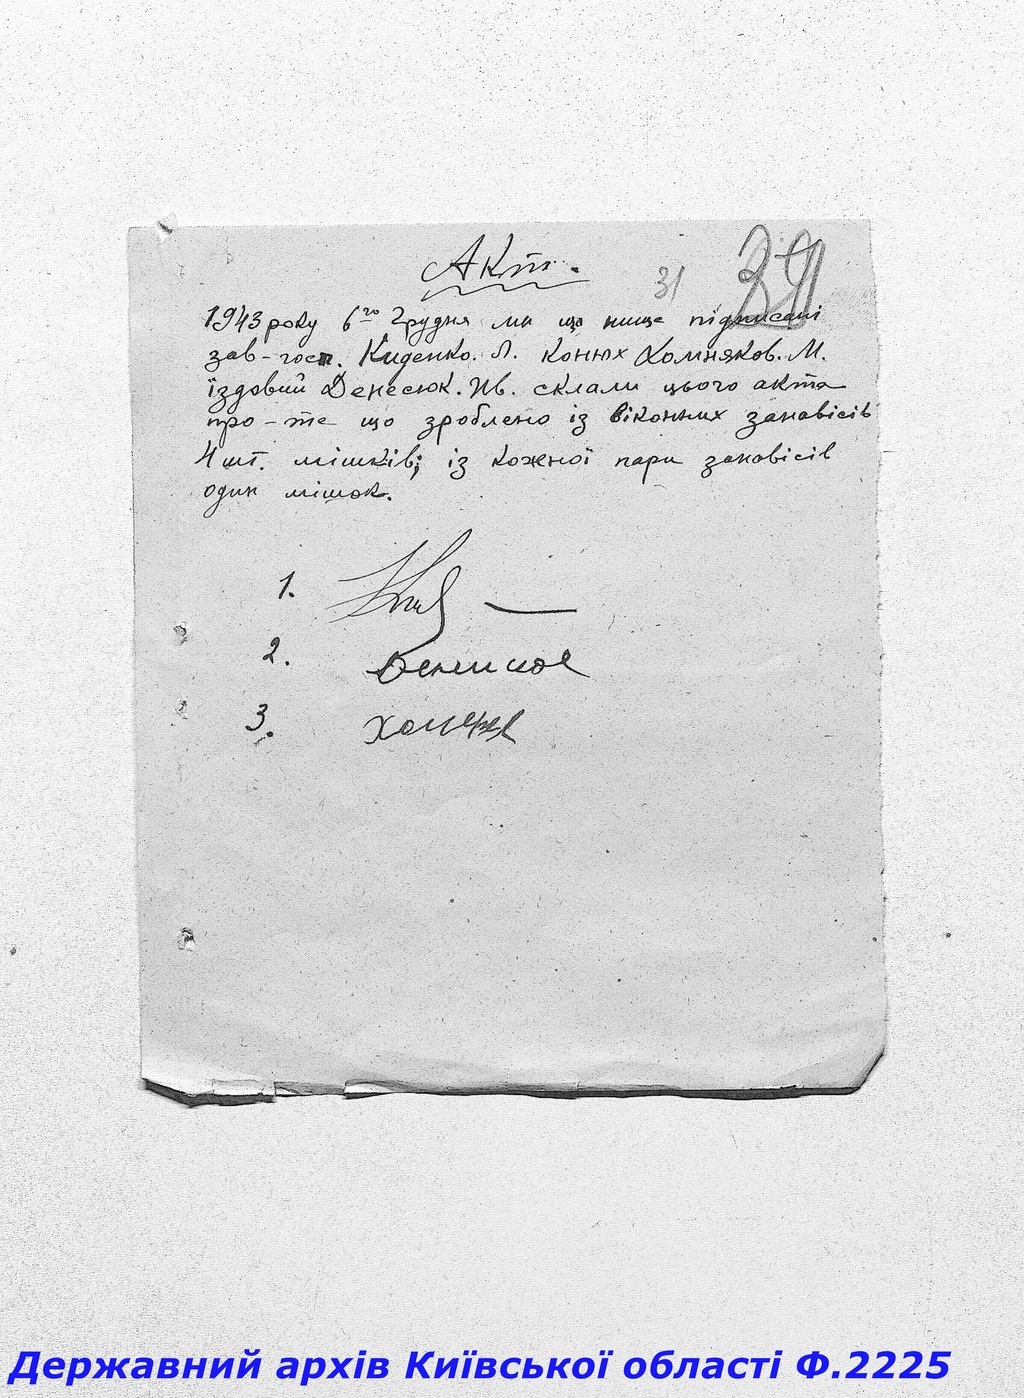 Акт.
31
1943 року 6го Грудня ми що нище підписані
зав-госп. Киденко. Л. конюх Хомняков. М.
їздовий Денесюк. Ив. склали цього акта
про-те що зроблено із віконних занавісів
4 шт. мішків; із кожної пари занавісів
один мішок.
1.
2.
3.
Державний архів Київської області Ф.2225